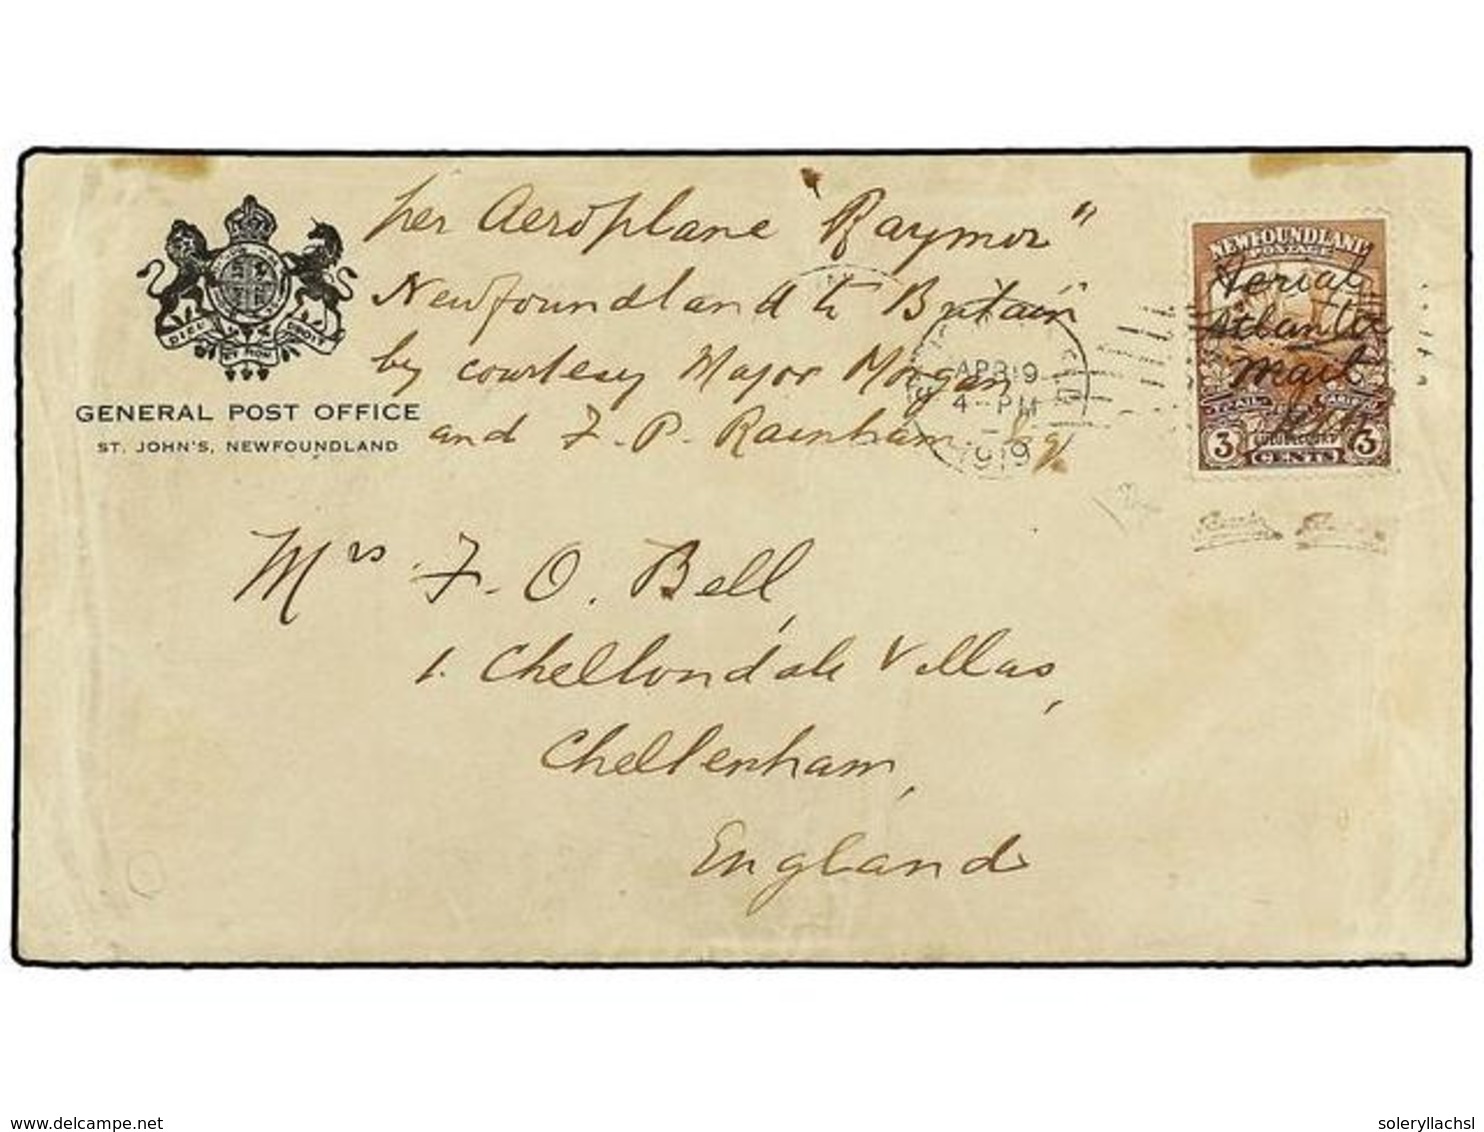 per Aeroplane "Raymor"
Newfoundland to Britain
by courtesy Major Morgan
and F. P. Rainham Esq
DIEU ET MON DROIT
GENERAL POST OFFICE
ST. JOHN'S, NEWFOUNDLAND
APR 19
4 - PM
1919
NEWFOUNDLAND
POSTAGE
Aerial
Atlantic
Mail
TRAIL OF THE CARIBOU
3 CENTS 3
Mrs F. O. Bell,
1. Cheltondale Villas,
Cheltenham,
England
delcampe.net
soleryllachsl